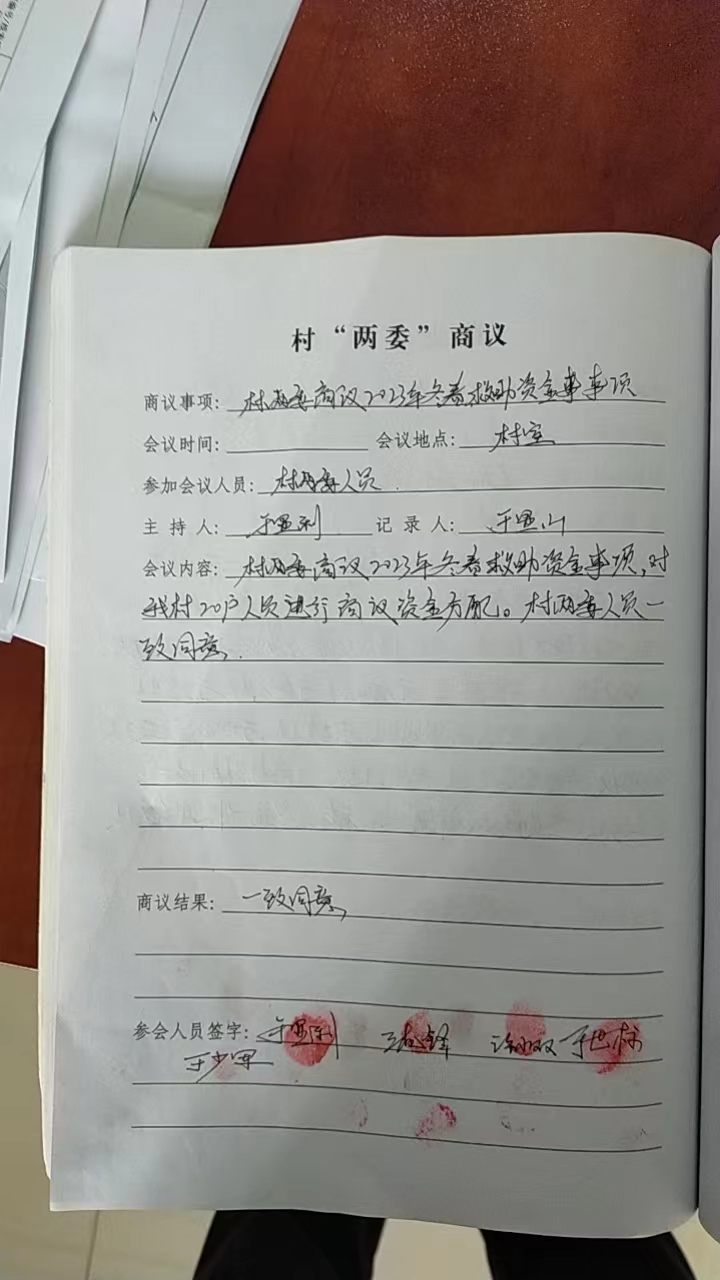 村“两委”商议
商议事项: 村两委商议2023年冬春救助资金事事项
会议时间: 会议地点: 村室
参加会议人员: 村两委人员.
主持人: 于亚利 记录人: 于亚山
会议内容: 村两委商议2023年冬春救助资金事项,对
我村20户人员进行商议资金分配。村两委人员一
致同意.
商议结果: 一致同意
参会人员签字: 于亚利
于少军